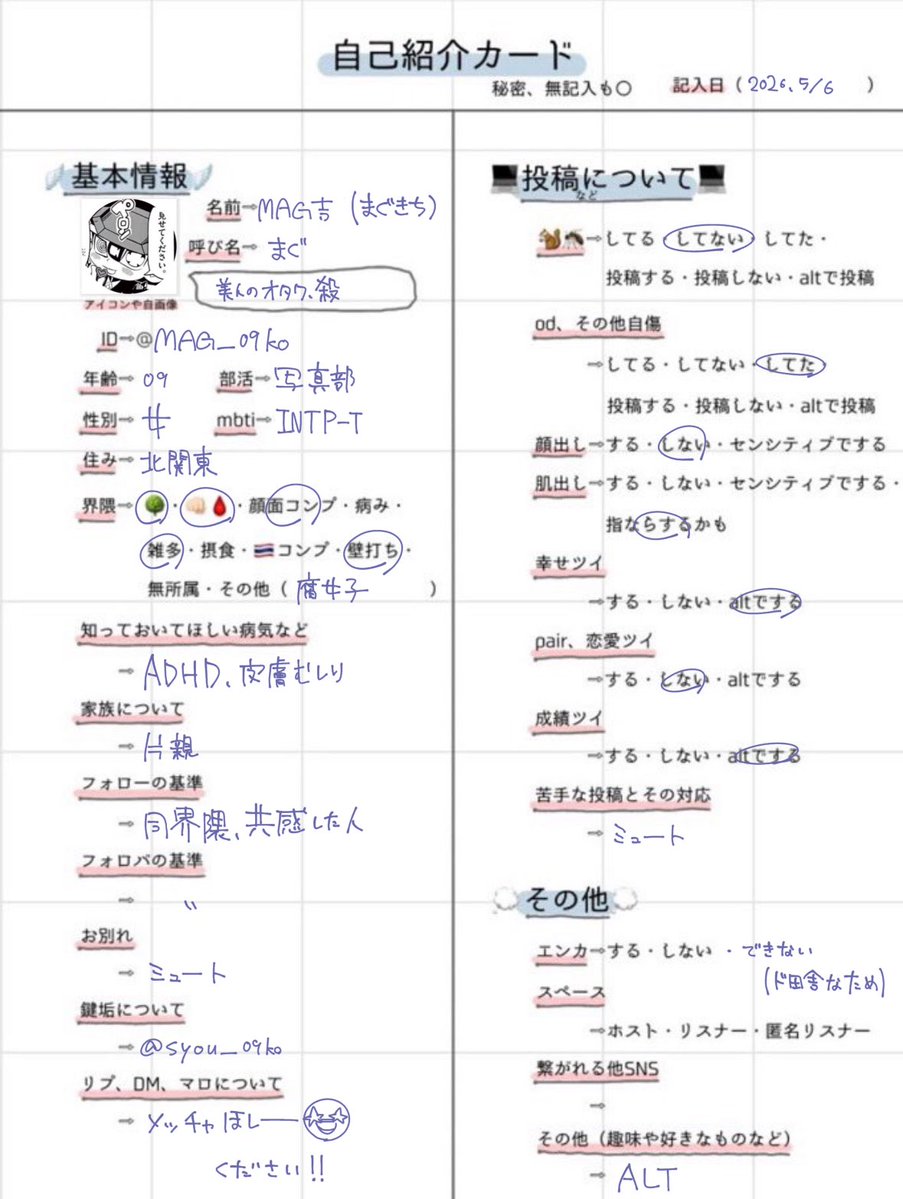 自己紹介カード
秘密、無記入も〇
記入日（2026.5/6）
基本情報
ペロッ
見せてください。
アイコンや自画像
名前⇒MAG吉（まぐきち）
呼び名⇒まぐ
美人のオタク、殺
ID⇒@MAG_09ko
年齢⇒09 部活⇒写真部
性別⇒女 mbti⇒INTP-T
住み⇒北関東
界隈⇒🌳・👊🏻🩸・顔面コンプ・病み・
雑多・摂食・🇹🇭コンプ・壁打ち・
無所属・その他（腐女子）
知っておいてほしい病気など
⇒ADHD、皮膚むしり
家族について
⇒片親
フォローの基準
⇒同界隈、共感した人
フォロバの基準
⇒〃
お別れ
⇒ミュート
鍵垢について
⇒@syou_09ko
リプ、DM、マロについて
⇒メッチャほしー
ください!!
💻投稿について💻
など
🐿🦟⇒してる・してない・してた・
投稿する・投稿しない・altで投稿
od、その他自傷
⇒してる・してない・してた
投稿する・投稿しない・altで投稿
顔出し⇒する・しない・センシティブでする
肌出し⇒する・しない・センシティブでする・
指ならするかも
幸せツイ
⇒する・しない・altでする
pair、恋愛ツイ
⇒する・しない・altでする
成績ツイ
⇒する・しない・altでする
苦手な投稿とその対応
⇒ミュート
その他
エンカ⇒する・しない・できない
(ド田舎なため)
スペース
⇒ホスト・リスナー・匿名リスナー
繋がれる他SNS
⇒
その他（趣味や好きなものなど）
⇒ALT